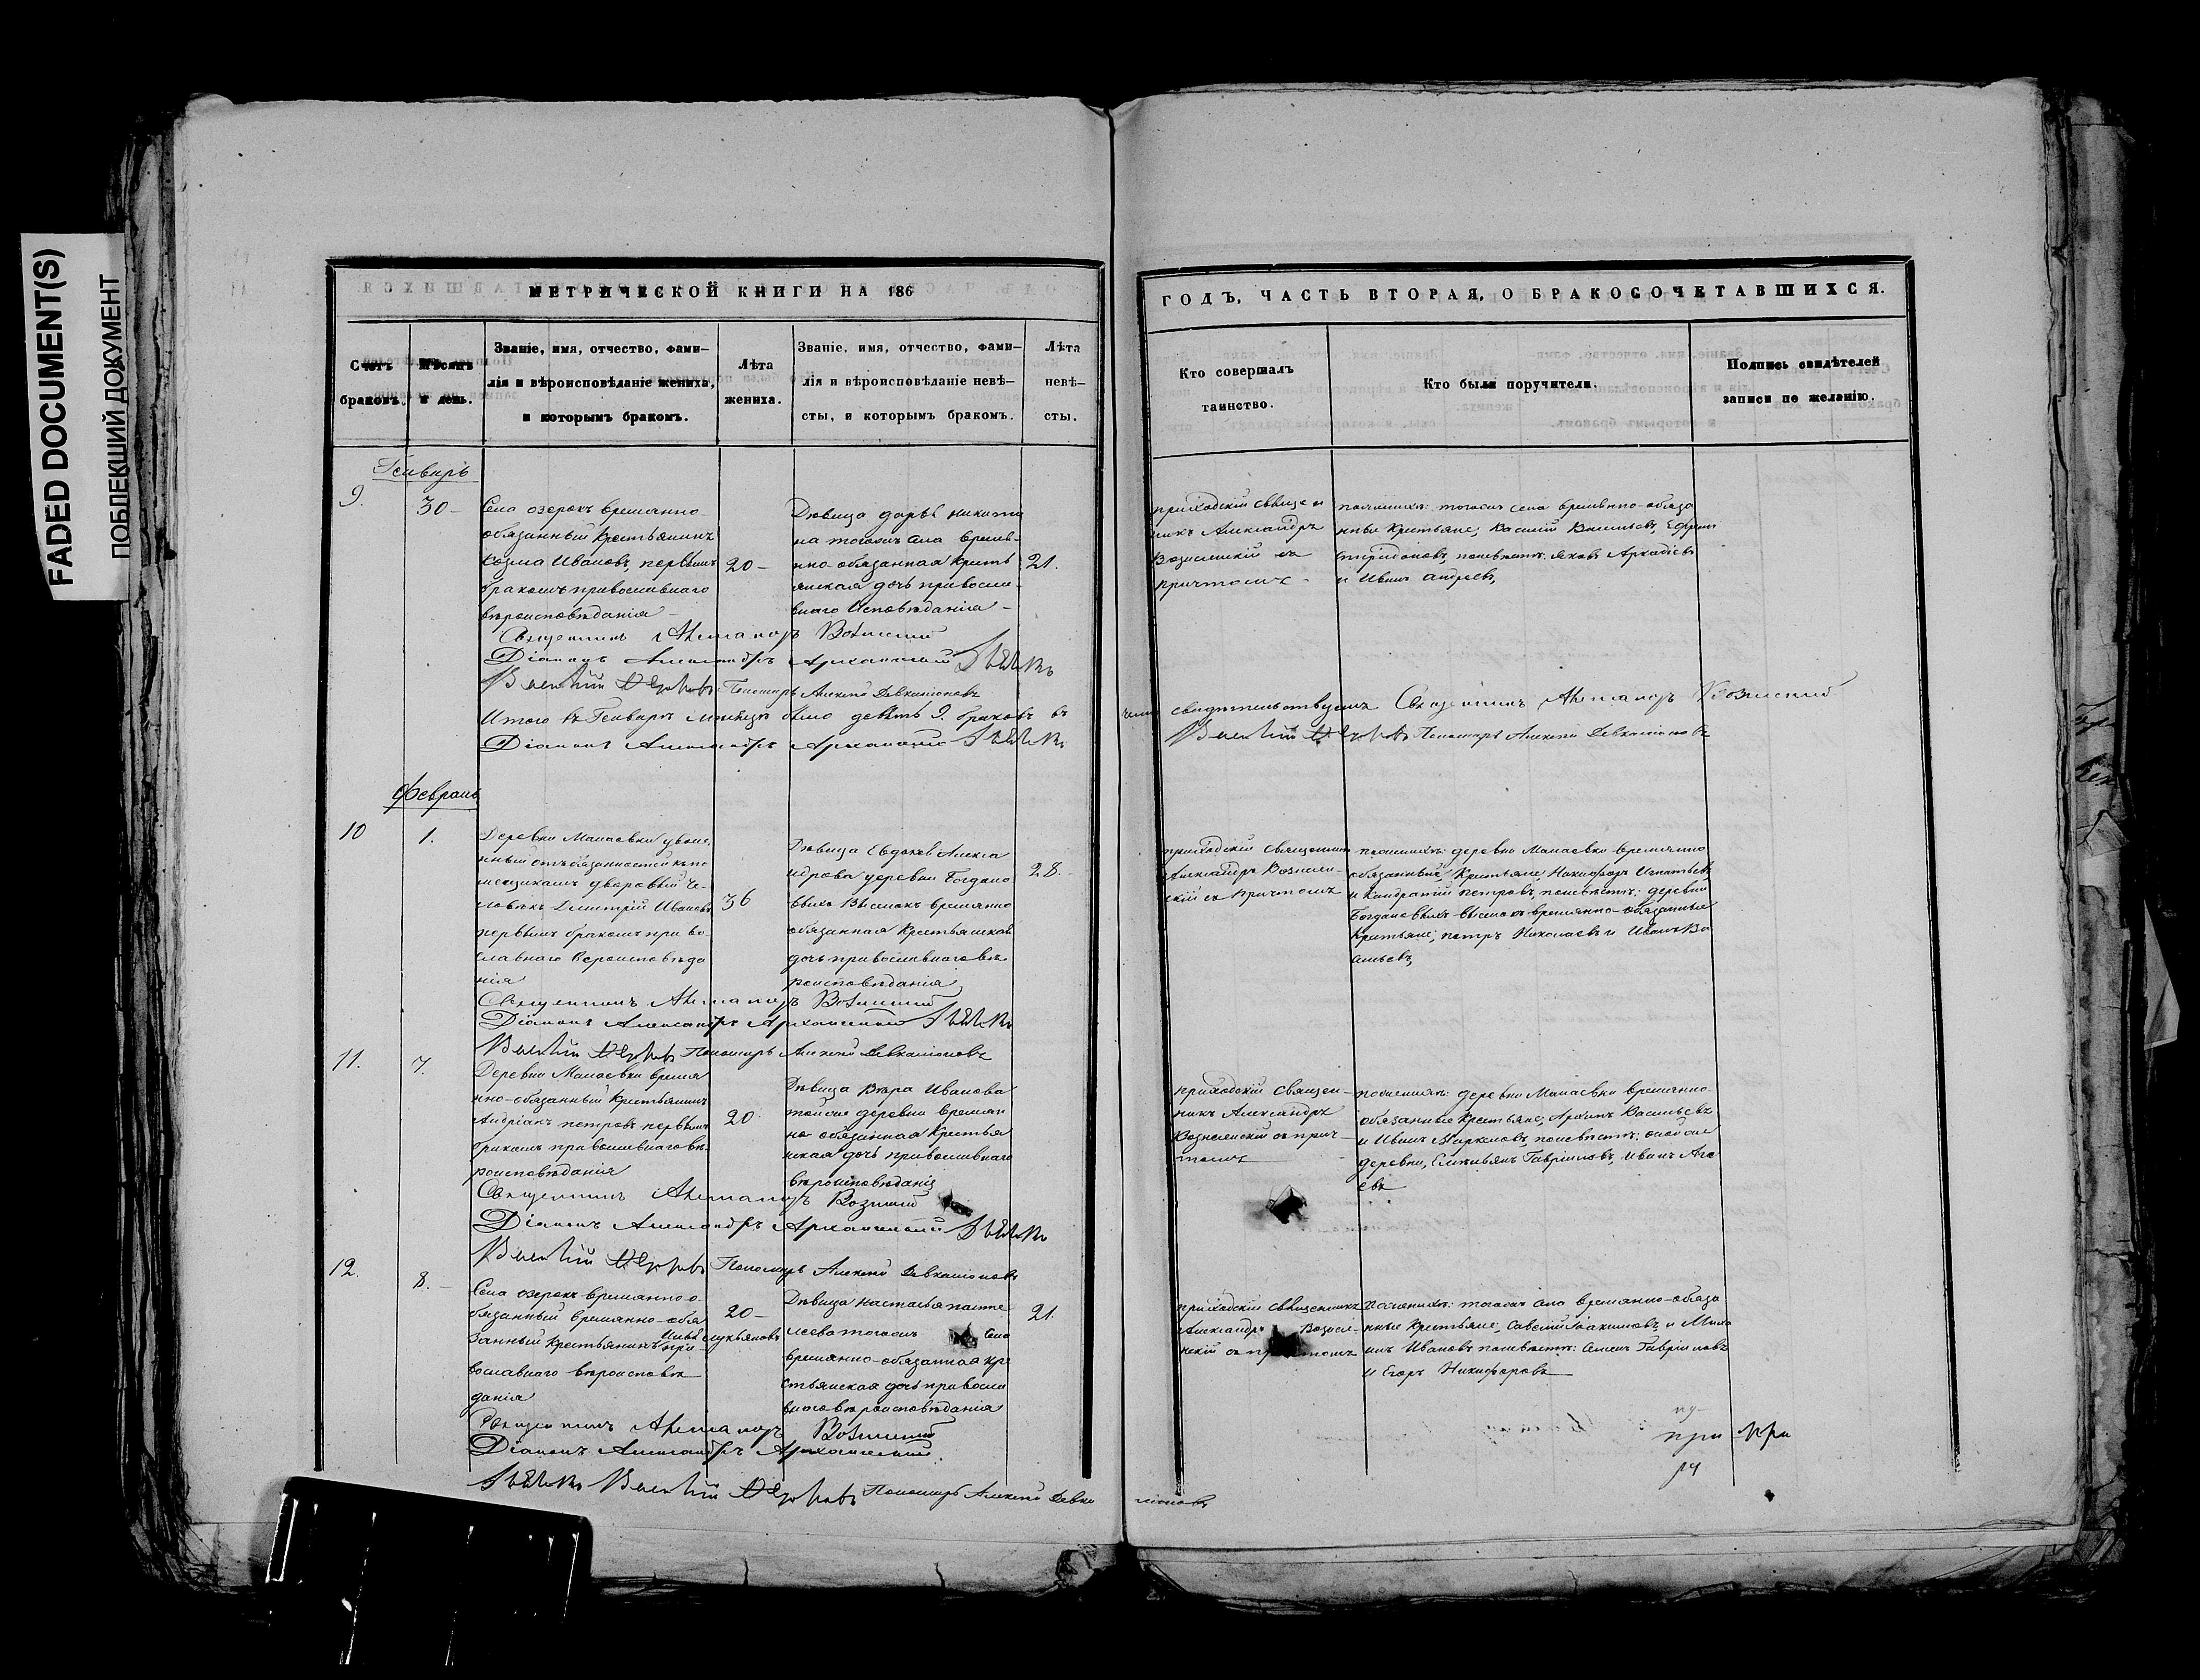 FADED DOCUMENT(S)
ПОБЛЕКШИЙ ДОКУМЕНТ
МЕТРИЧЕСКОЙ КНИГИ НА 186
Счетъ браковъ.
Мѣсяцъ и день.
Званіе, имя, отчество, фами-
лія и вѣроисповѣданіе жениха,
и которымъ бракомъ.
Лѣта
жениха.
Званіе, имя, отчество, фами-
лія и вѣроисповѣданіе невѣ-
сты, и которымъ бракомъ.
Лѣта
невѣ-
сты.
Генварь
9.
30-
Села озерокъ временно
обязанный Крестьянинъ
Козма Ивановъ, первымъ
бракомъ православнаго
вѣроисповѣданія
20-
Дѣвица дарья никити
на тогожъ села време-
нно-обязанная Кресть
янская дочь правосла-
внаго Исповѣданія
21.
Священникъ Александръ Вознесенскій
Діаконъ Александръ Архангельскій Дьячекъ
Пономарь Алексѣй Девкаліоновъ
Итого въ Генварѣ мѣсяцѣ было девять 9. браковъ въ
Діаконъ Александръ Архангельскій Дьячекъ
Февраль
10
1.
Деревни Манаевки уволе
нный отъ обязанностей къ по
мещикамъ дворовый че-
ловѣкъ Димитрій Ивановъ
первымъ бракомъ право
славнаго Вероисповѣда
нія
36
Дѣвица Евдокея Алекса
ндрова деревни Богдано
выхъ Выселокъ временно
обязанная Крестьянская
дочь православнаго вѣ-
роисповѣданія
28.
Священникъ Александръ Вознесенскій
Діаконъ Александръ Архангельскій Дьячекъ
Пономарь Алексѣй Девкаліоновъ
11.
7.
Деревни Манаевки времен
нно-обязанный Крестьянинъ
Андріанъ петровъ первымъ
бракомъ православнаго вѣ-
роисповѣданія
20
Дѣвица Вѣра Иванова
тойже деревни времен
но обязанная Крестья
нская дочь православнаго
вѣроисповѣданія
Священникъ Александръ Вознесенскій
Діаконъ Александръ Архангельскій Дьячекъ
Пономарь Алексѣй Девкаліоновъ
12.
8.
Села озерокъ временно-о
бязанный временно-обя
занный Крестьянинъ Илья лукьяновъ пра-
вославнаго вѣроисповѣ
данія
20-
Дѣвица настасья панте
леева тогожъ Села
временно-обязанная кре
стьянская дочь правосла
внаго вѣроисповѣданія
21.
Священникъ Александръ Вознесенскій
Діаконъ Александръ Архангельскій.
Дьячекъ Пономарь Алексѣй Девка
ліоновъ
ГОДЪ, ЧАСТЬ ВТОРАЯ, О БРАКОСОЧЕТАВШИХСЯ.
Кто совершалъ
таинство.
Кто были поручители.
Подпись свидѣтелей
записи по желанію.
приходскій священ
никъ Александръ
Вознесенскій съ
причтомъ
по женихѣ: тогожъ села временно-обяза
нные Крестьяне; Василій Васильевъ, Ефремъ
Спиридоновъ, поневѣстѣ: яковъ Аркадіевъ
и Иванъ андреевъ,
чемъ свидѣтельствуемъ Священникъ Александръ Вознесенскій
Пономарь Алексѣй Девкаліоновъ
приходскій Священникъ
Александръ Вознесен-
скій съ Причтомъ
по женихѣ: деревни Манаевки временно
обязанные Крестьяне; Никифоръ Игнатьевъ
и Кондратій петровъ, поневѣстѣ: деревни
Богдановыхъ выселокъ временно-обязанные
Крестьяне; петръ Николаевъ и Иванъ Ва
сильевъ,
приходскій Священ-
никъ Александръ
Вознесенскій съ прич-
томъ
по женихѣ: деревни Манаевки временно
обязанные Крестьяне; Архипъ Васильевъ
и Иванъ Маркеловъ, поневѣстѣ: онойже
деревни, Емельянъ Гавріиловъ, Иванъ Ага
евъ
приходскій Священникъ
Александръ Вознесе-
нскій съ причтомъ
по женихѣ: тогожъ села временно-обяза
нные Крестьяне, Савелій Іоакимовъ, и Миха
илъ Ивановъ поневѣстѣ: Семенъ Гавріиловъ
и Егоръ Никифоровъ
при при